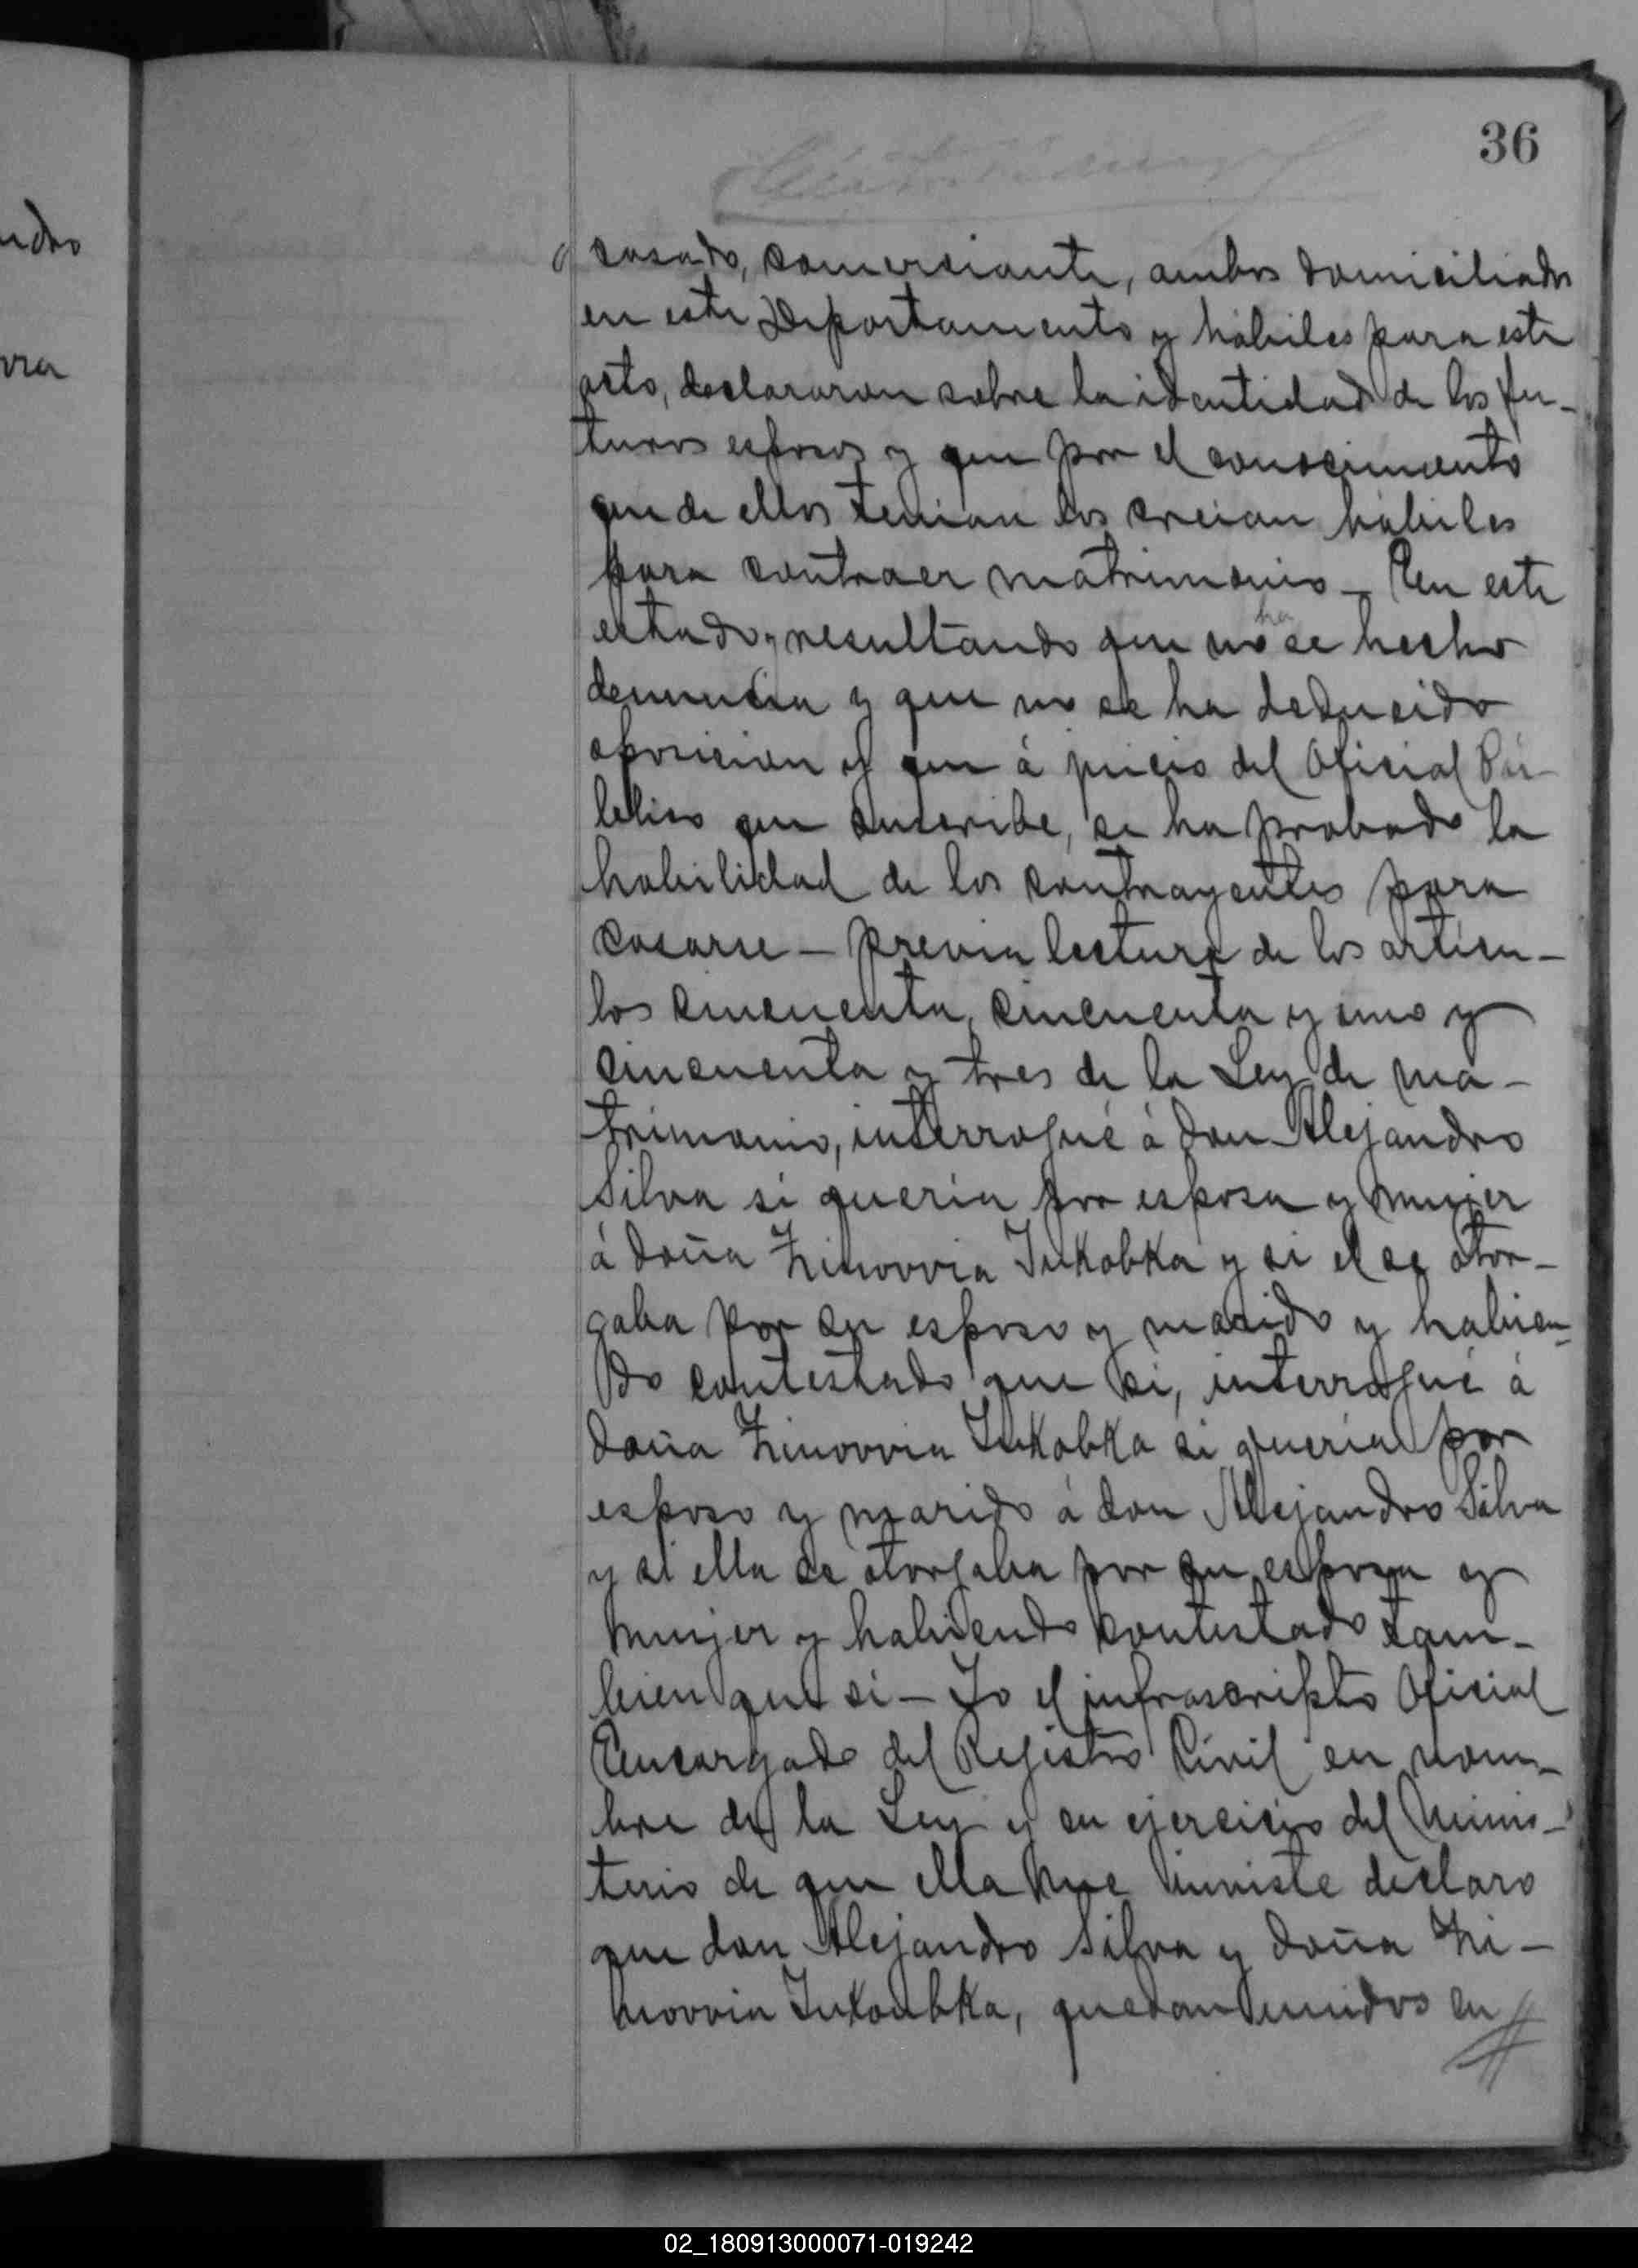 36
ndro
casado, comerciante, ambos domiciliados
en este Departamento y hábiles para este
acto, declararon sobre la identidad de los fu-
turos esposos y que por el conocimiento
que de ellos tenian los creian hábiles
para contraer matrimonio - En este
ha
estado y resultando que no se hecho
denuncia y que no se ha deducido
oposicion y que á juicio del Oficial Pú-
blico que suscribe, se ha probado la
habilidad de los contrayentes para
casarse - previa lectura de los artícu-
los cincuenta, cincuenta y uno y
cincuenta y tres de la Ley de ma-
trimonio, interrogué á don Alejandro
Silva si queria por esposa y mujer
á doña Zinovvia Iukobka y si el se otor-
gaba por su esposo y marido y habien-
do contestado que si, interrogué á
doña Zinovvia Iukobka si queria por
esposo y marido á don Alejandro Silva
y si ella se otorgaba por su esposa y
mujer y habiendo contestado tam-
bien que si - Yo el infrascripto Oficial
Encargado del Registro Civil en nom-
bre de la Ley y en ejercicio del Minis-
terio de que ella me inviste declaro
que don Alejandro Silva y doña Zi-
novvia Iukoubka, quedan unidos en
02_180913000071-019242